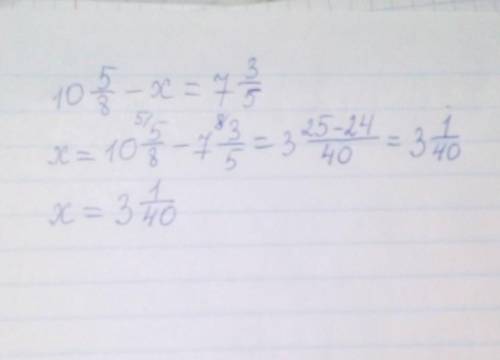 10 5/8 - x = 7 3/5
x = 10 ⁵⁾5/8 - 7 ⁸⁾3/5 = 3 (25-24)/40 = 3 1/40
x = 3 1/40